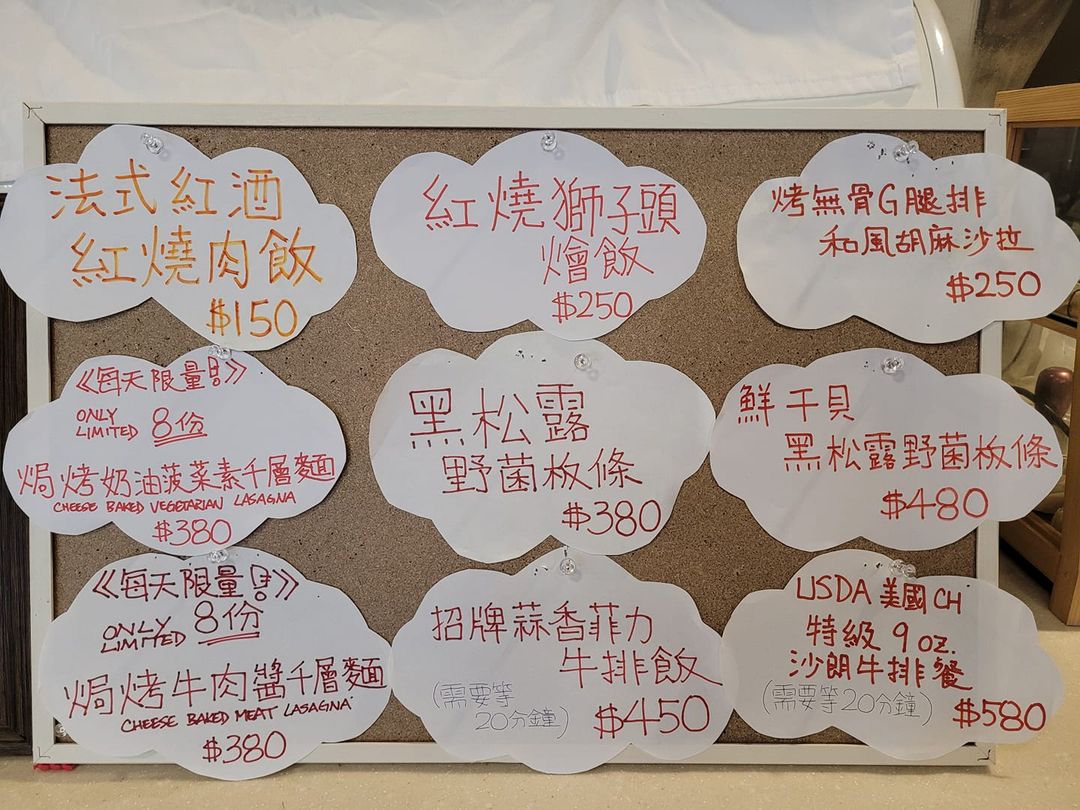 法式紅酒
紅燒肉飯
$150
紅燒獅子頭
燴飯
$250
烤無骨G腿排
和風胡麻沙拉
$250
《每天限量!》
ONLY
LIMITED 8份
焗烤奶油菠菜素千層麵
CHEESE BAKED VEGETARIAN LASAGNA
$380
黑松露
野菌板條
$380
鮮干貝
黑松露野菌板條
$480
《每天限量!》
ONLY
LIMITED 8份
焗烤牛肉醬千層麵
CHEESE BAKED MEAT LASAGNA
$380
招牌蒜香菲力
牛排飯
(需要等
20分鐘)
$450
USDA 美國 CH
特級 9 oz.
沙朗牛排餐
(需要等20分鐘)
$580